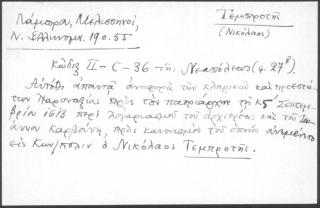 Λάμπρου, Μελισσηνοί,
Ν. Ἑλληνομν. 190. 55
Τεμπροτής
(Νικόλαος)
Κῶδιξ II-C-36 τῆς Νεαπόλεως
Αὐτόθι ἀπαντᾷ ἀναφορὰ τῶν κληρικῶν καὶ προεστώ-
των Παροναξίας πρὸς τὸν πατριάρχην τῇ κς΄ Σεπτεμ-
βρίου 1613 περὶ λογαριασμοῦ τοῦ ἀρχιερέως καὶ τοῦ Ἰωά-
ννου Καρβούνη, πρὸς κανονισμὸν τοῦ ὁποίου
εἰς Κων/πολιν ὁ Νικόλαος Τεμπροτής.